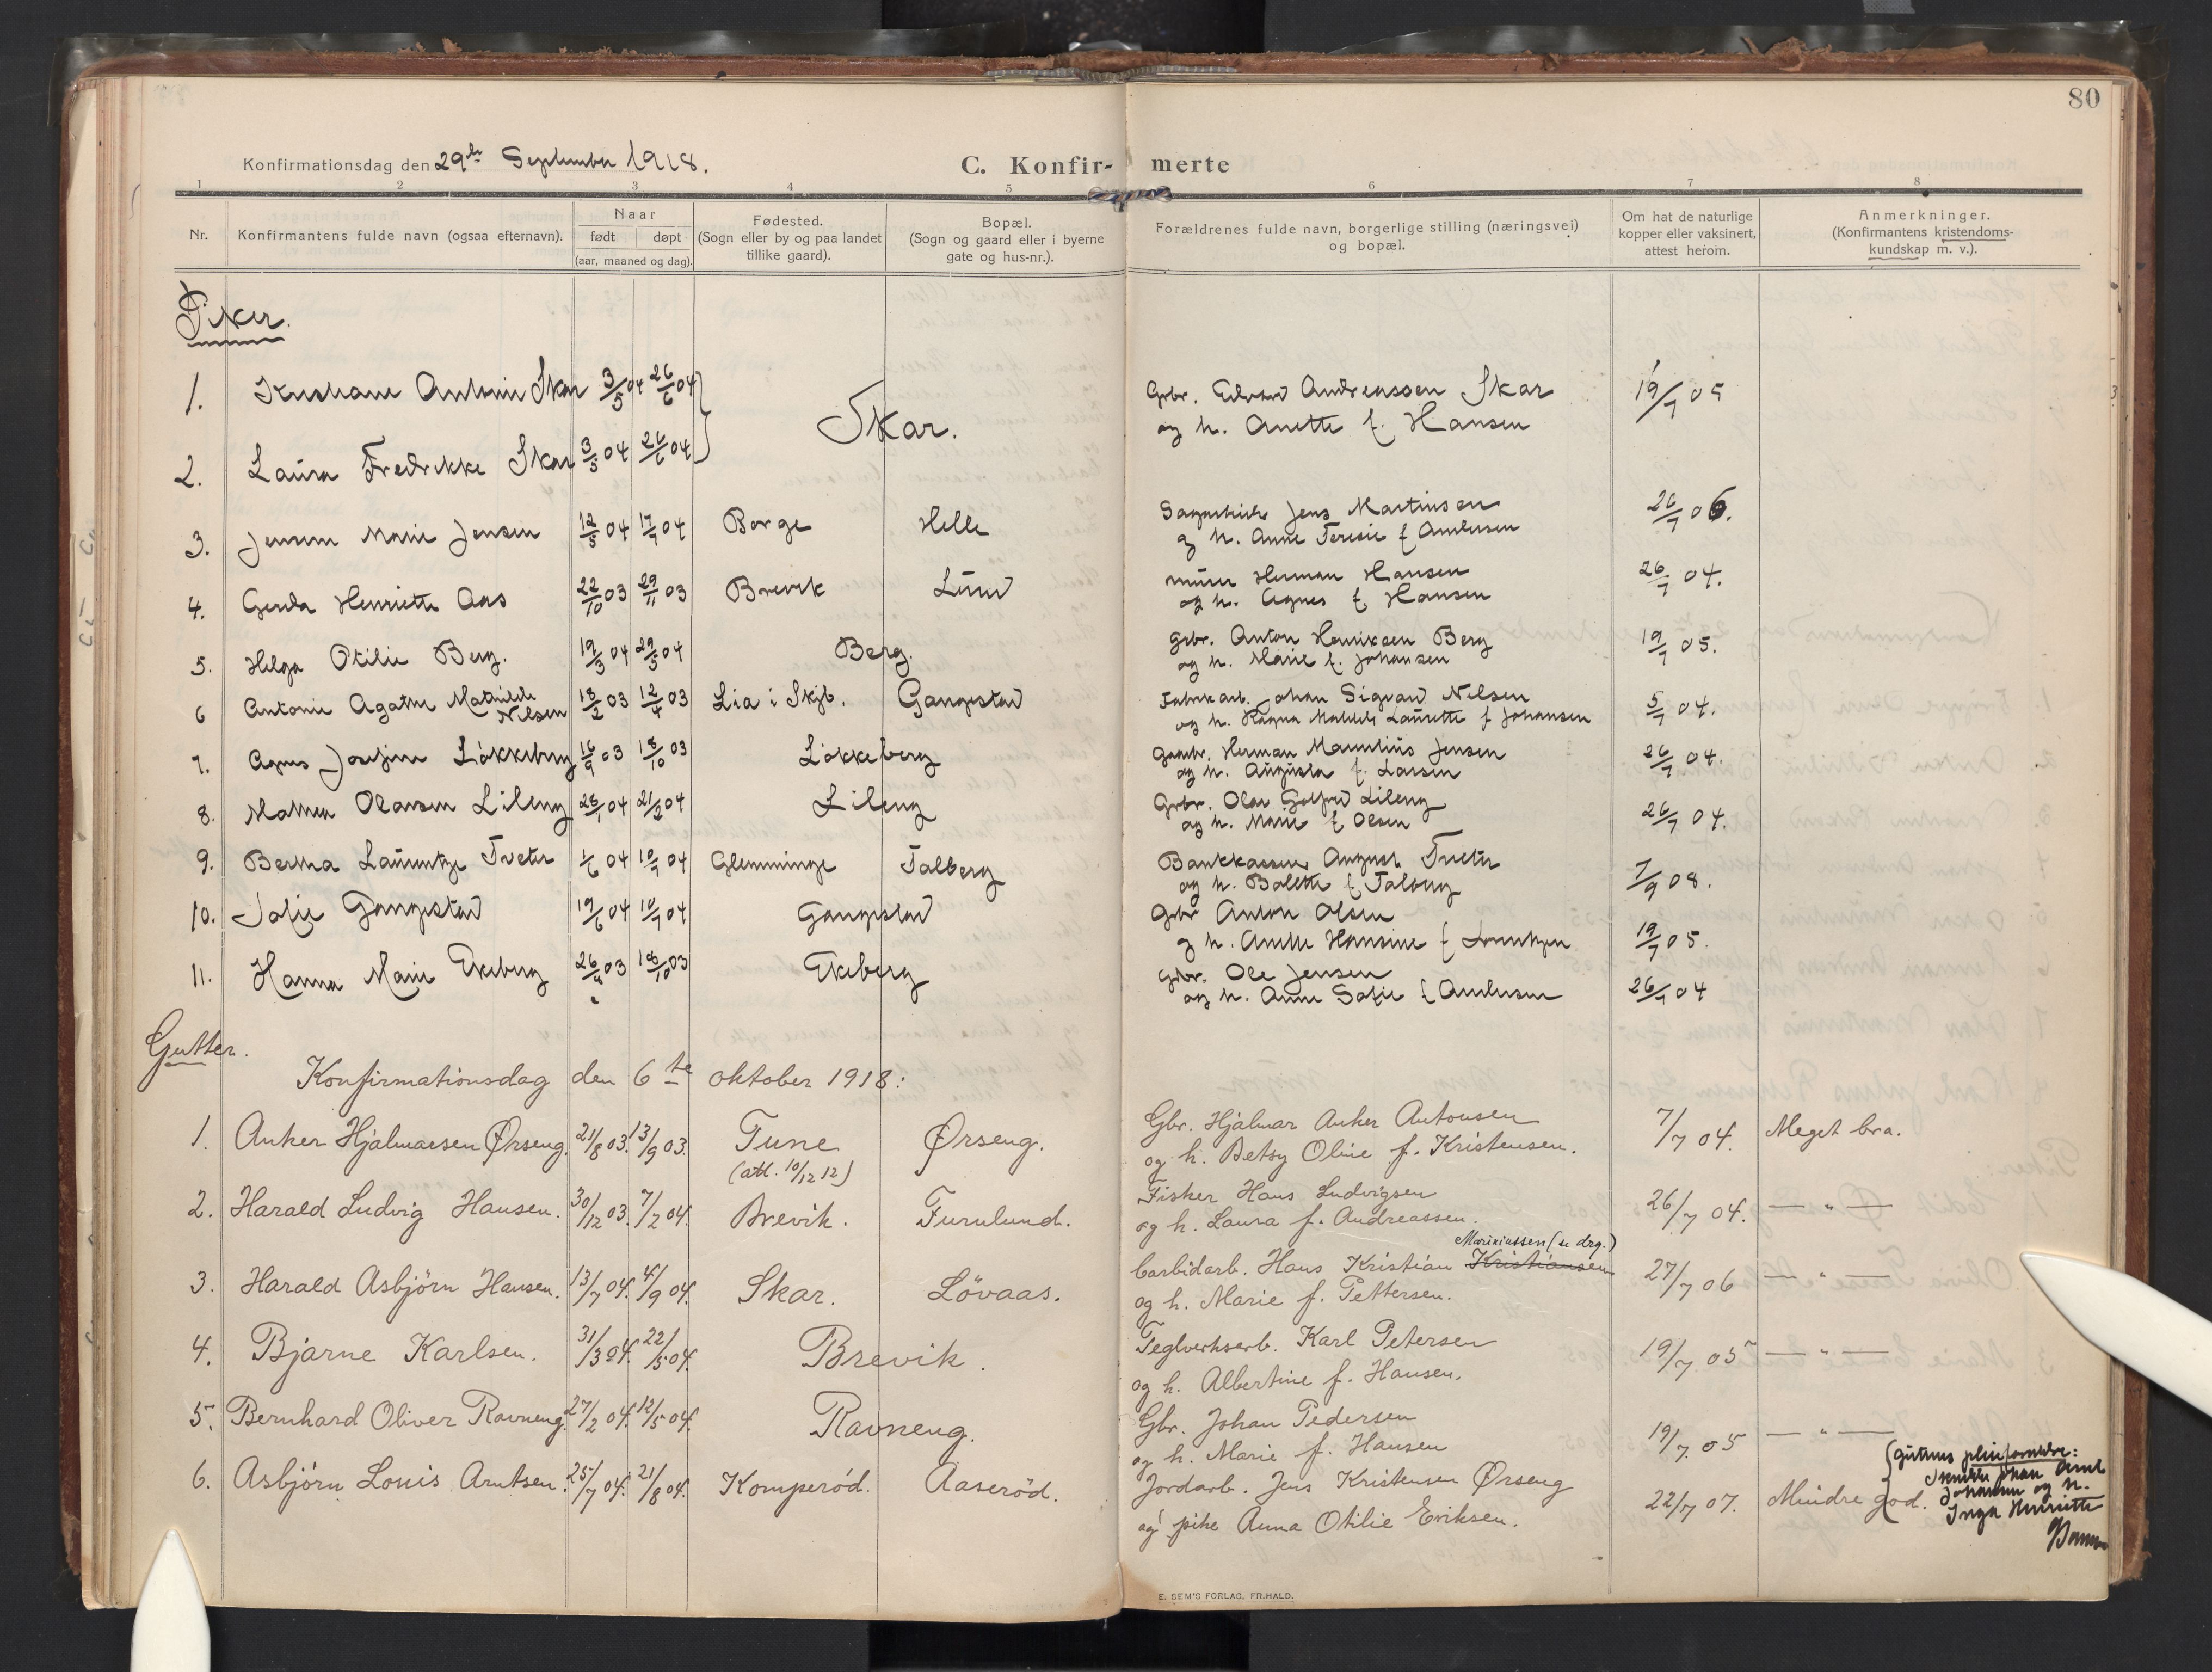 80
Konfirmationsdag den 29de September 1918.
C. Konfir- merte
1 2 3 4 5 6 7 8
Nr.
Konfirmantens fulde navn (ogsaa efternavn).
Naar
født døpt
(aar, maaned og dag).
Fødested.
(Sogn eller by og paa landet
tillike gaard).
Bopæl.
(Sogn og gaard eller i byerne
gate og hus-nr.).
Forældrenes fulde navn, borgerlige stilling (næringsvei)
og bopæl.
Om hat de naturlige
kopper eller vaksinert,
attest herom.
Anmerkninger.
(Konfirmantens kristendoms-
kundskap m. v.).
Piker.
1. Kristiane Antonie Skar 3/5 04 26/6 04 Skar. Grbr. Edvard Andreassen Skar 19/7 05
og h. Anette f. Hansen
2. Laura Fredrikke Skar 3/5 04 26/6 04
3. Jensine Marie Jensen 12/5 04 17/7 04 Borge Helle Jens Martinsen 26/7 06.
og h. Anne Teresie f Andersen
4. Gerda Henriette Aas 22/10 03 29/11 03 Brevik Lund murer Herman Hansen 26/7 04.
og h. Agnes f Hansen
5. Helga Otilie Berg. 19/3 04 29/5 04 Berg. Grbr. Anton Henriksen Berg 19/7 05.
og h. Marie f. Johansen
6 Antonie Agathe Mathilde Nilsen 18/2 03 12/4 03 Lia i Skjb. Gangestad Fabrikarb. Johan Sigvard Nilsen 5/7 04.
og h. Ragna Mathilde Laurette f Johansen
7. Agnes Josefine Løkkeberg 16/9 03 18/10 03 Løkkeberg Herman Mauritius Jensen 26/7 04.
og h. Augusta f. Larsen
8. Mathea Olarsen Lileng 28/1 04 21/2 04 Lileng Grbr. Olav Gotfred Lileng 26/7 04.
og h. Marie f Olsen
9. Bertha Lauentze Tveter 1/6 04 10/7 04 Glemminge Talberg Bankkasserer August Tveter 7/9 08.
og h. Bolette f Talberg
10. Sofie Gangestad 19/6 04 10/7 04 Gangestad Grbr Anton Olsen 19/7 05.
og h. Anette Hansine f
11. Hanna Marie Ekeberg 26/4 03 18/10 03 Ekeberg Grbr. Ole Jensen 26/7 04
og h. Anne Sofie f Andersen
Gutter.
Konfirmationsdag den 6te oktober 1918:
1. Anker Hjalmarsen Ørseng. 21/8 03. 13/9 03. Tune Ørseng. Gbr. Hjalmar Anker Antonsen 7/7 04. Meget bra.
(att. 10/12 12) og h. Betsy Oline f. Kristensen.
2. Harald Ludvig Hansen. 30/12 03. 7/2 04. Brevik. Furulund. Fisker Hans Ludvigsen 26/7 04. — " —
og h. Laura f. Andreassen.
Mariniussen (se drg.)
3. Harald Asbjørn Hansen. 13/7 04. 4/9 04. Skar. Løvaas. Carbidarb. Hans Kristian Kristiansen 27/7 06 — " —
og h. Marie f. Pettersen.
4. Bjarne Karlsen. 31/3 04. 22/5 04. Brevik. Teglverksarb. Karl Petersen 19/7 05 — " —
og h. Albertine f. Hansen.
5. Bernhard Oliver Ravneng. 27/2 04. 12/5 04. Ravneng. Gbr. Johan Pedersen 19/7 05 — " —
og h. Marie f. Hansen
6. Asbjørn Louis Arntsen. 25/7 04. 21/8 04. Komperød. Aaserød. Jordarb. Jens Kristensen Ørseng 22/7 07. Mindre god.
og pike Anna Otilie Eriksen.
Guttens pleieforeldre:
Johan Arnt
Johansen og h.
Inga Henriette
E. SEM'S FORLAG, FR.HALD.